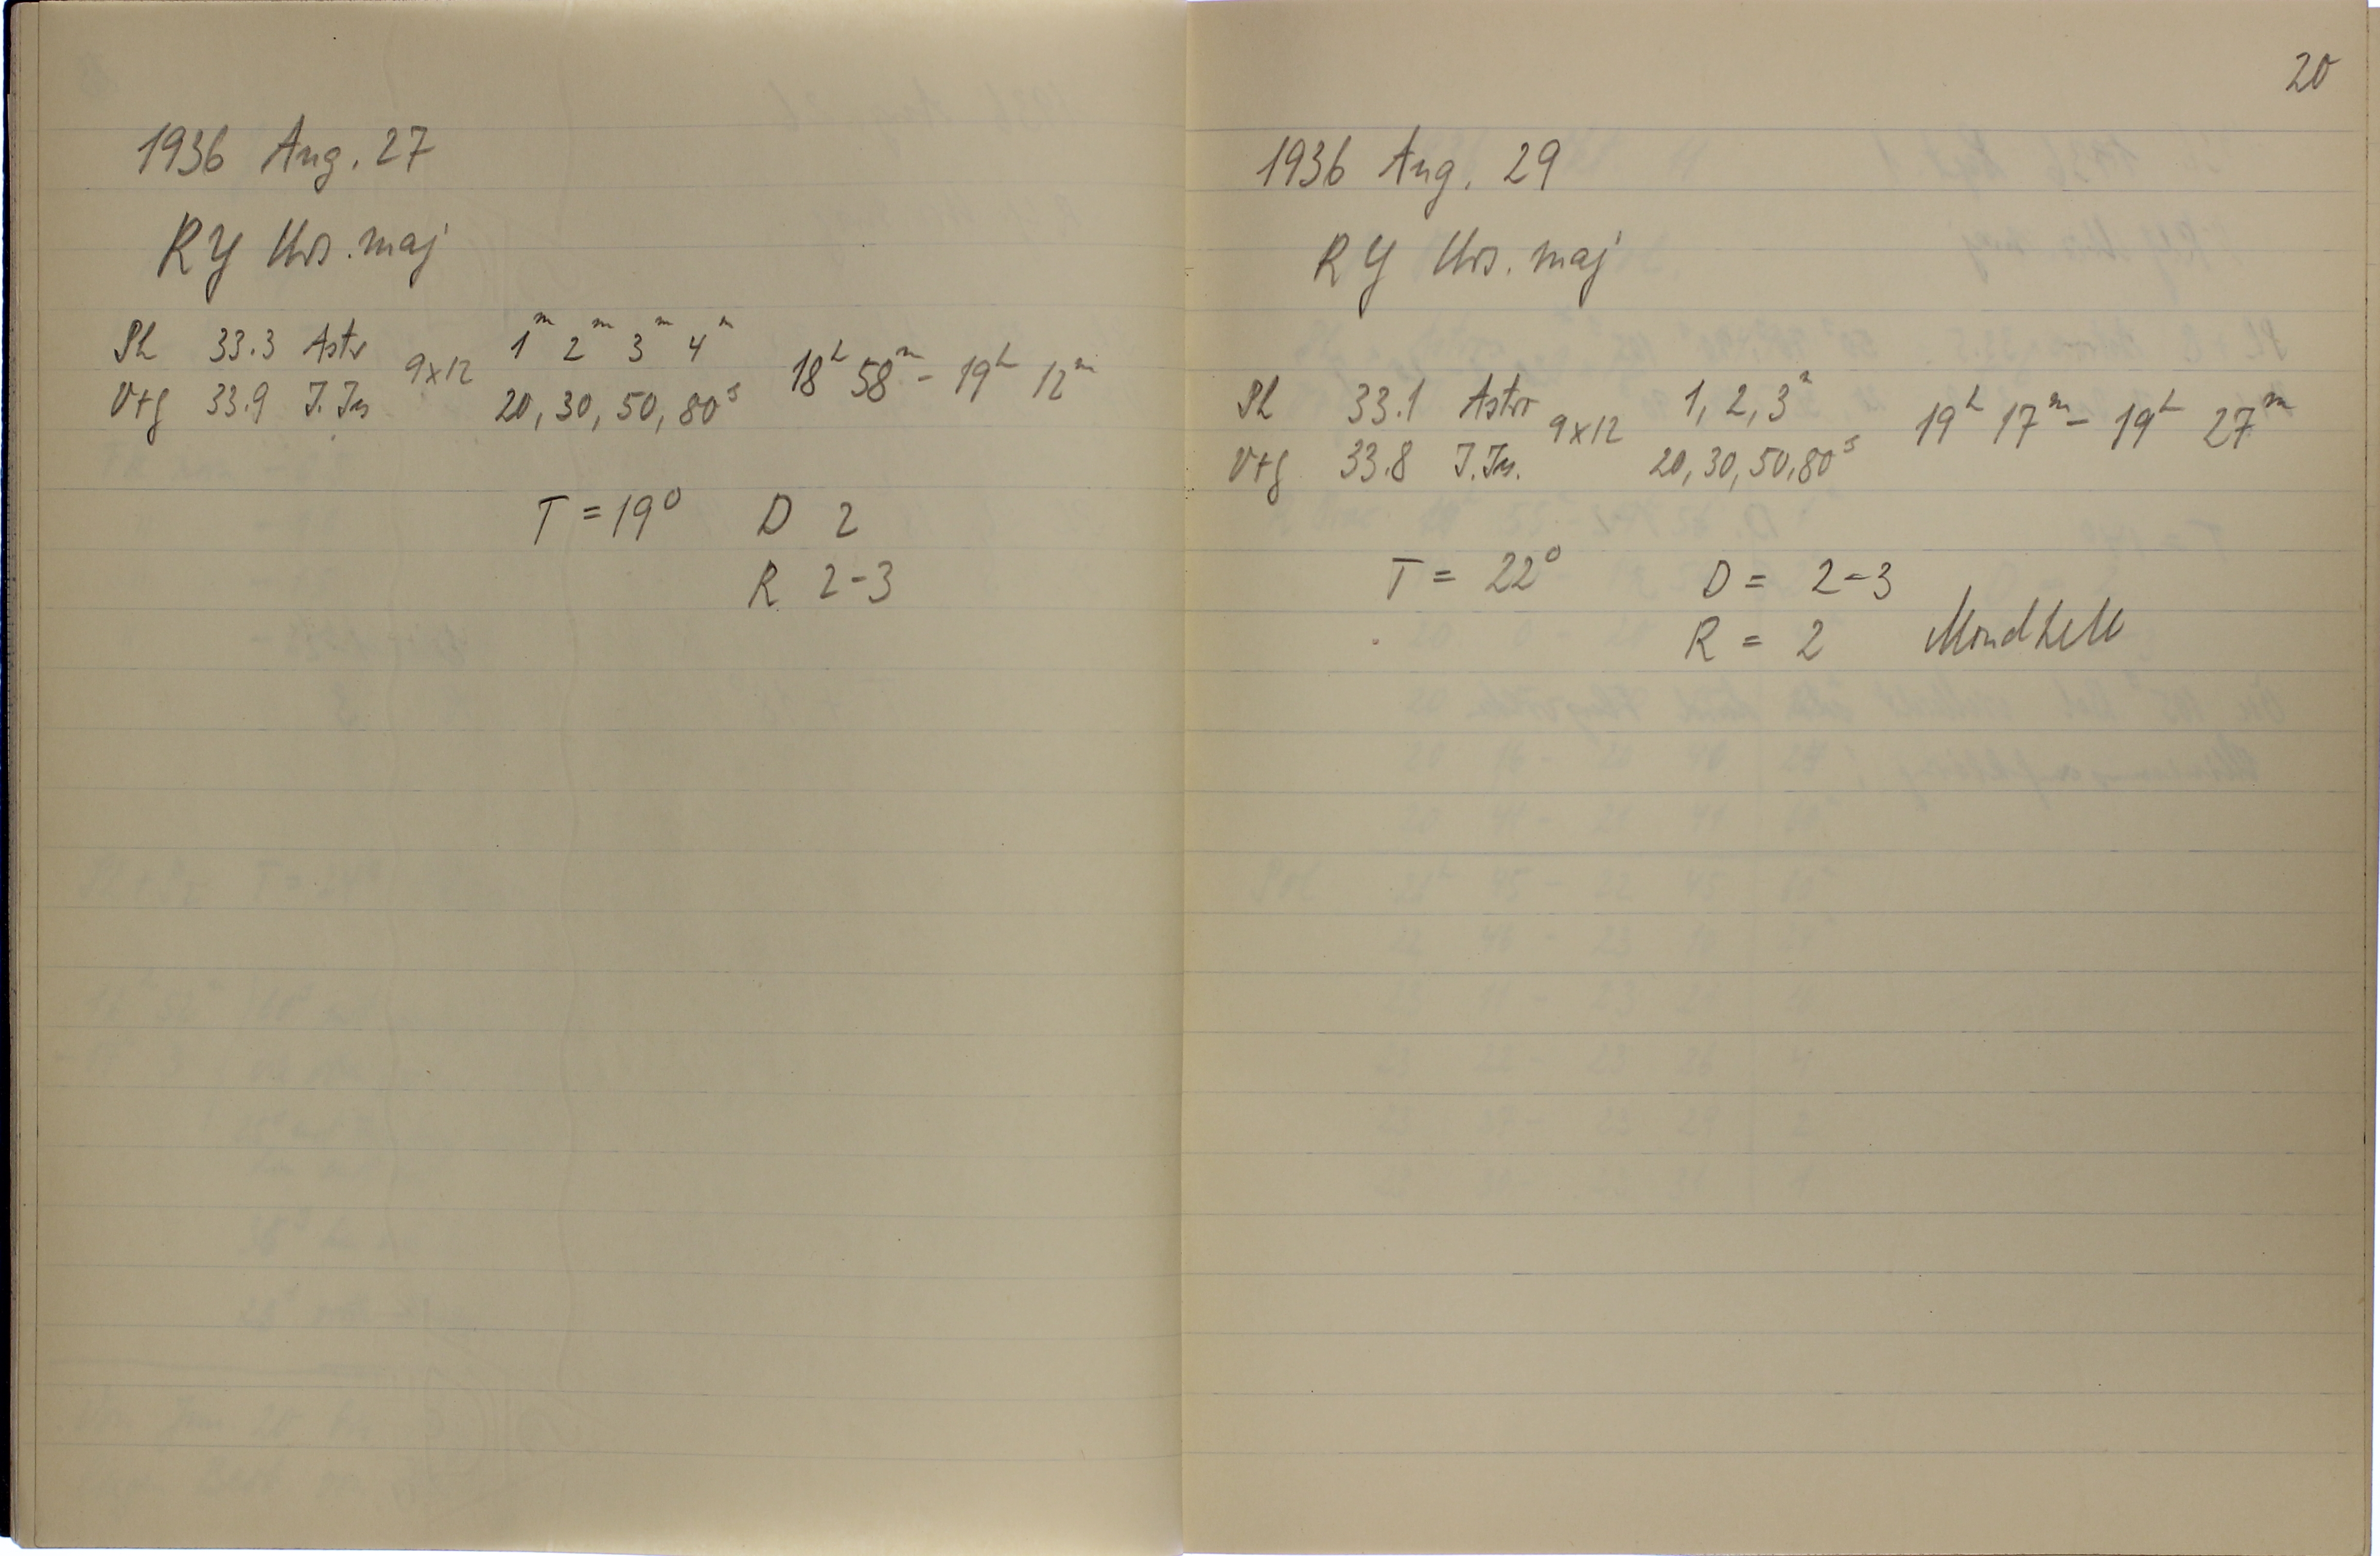 1936 Aug. 27
RY Urs. maj
Ph 33.3 Astr 9x12 1ᵐ 2ᵐ 3ᵐ 4ᵐ 18ʰ 58ᵐ - 19ʰ 12ᵐ
Vtg 33.9 J.Js 20, 30, 50, 80ˢ
T = 19⁰ D 2
R 2-3
20
1936 Aug. 29
RY Urs. maj
Ph 33.1 Astr 9x12 1, 2, 3ᵐ 19ʰ 17ᵐ - 19ʰ 27ᵐ
Vtg 33.8 J.Js. 20, 30, 50, 80ˢ
T = 22⁰ D = 2-3
R = 2 Mondhell